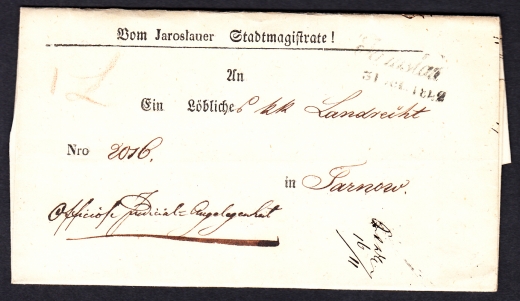 Vom Jaroslauer Stadtmagistrate!
Jaroslau
31
An
Ein Löbliches kk Landrecht
Nro 2016.
in Tarnow.
Officiose Judicial=Angelegenheit
16/11